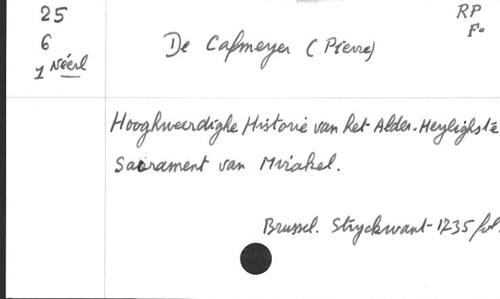 25
6
1 Néerl
RP
Fo
De Cafmeyer (Pierre)
Hooghweerdighe Historie van het Alder-Heylighste
Sacrament van Mirakel.
Brussel. Stryckwant - 1735 fol.